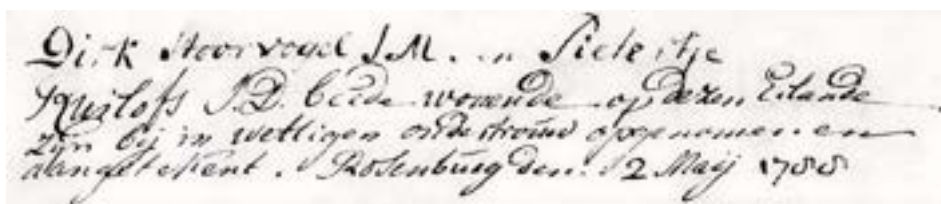 Dirk Stoorvogel J.M. en Pietertje
Kuilofs J.D. beede wonende op dezen Eilande
zijn bij in wettigen ondertrouw opgenomen en
aangetekent. Rosenburg den. 2 Maij 1788